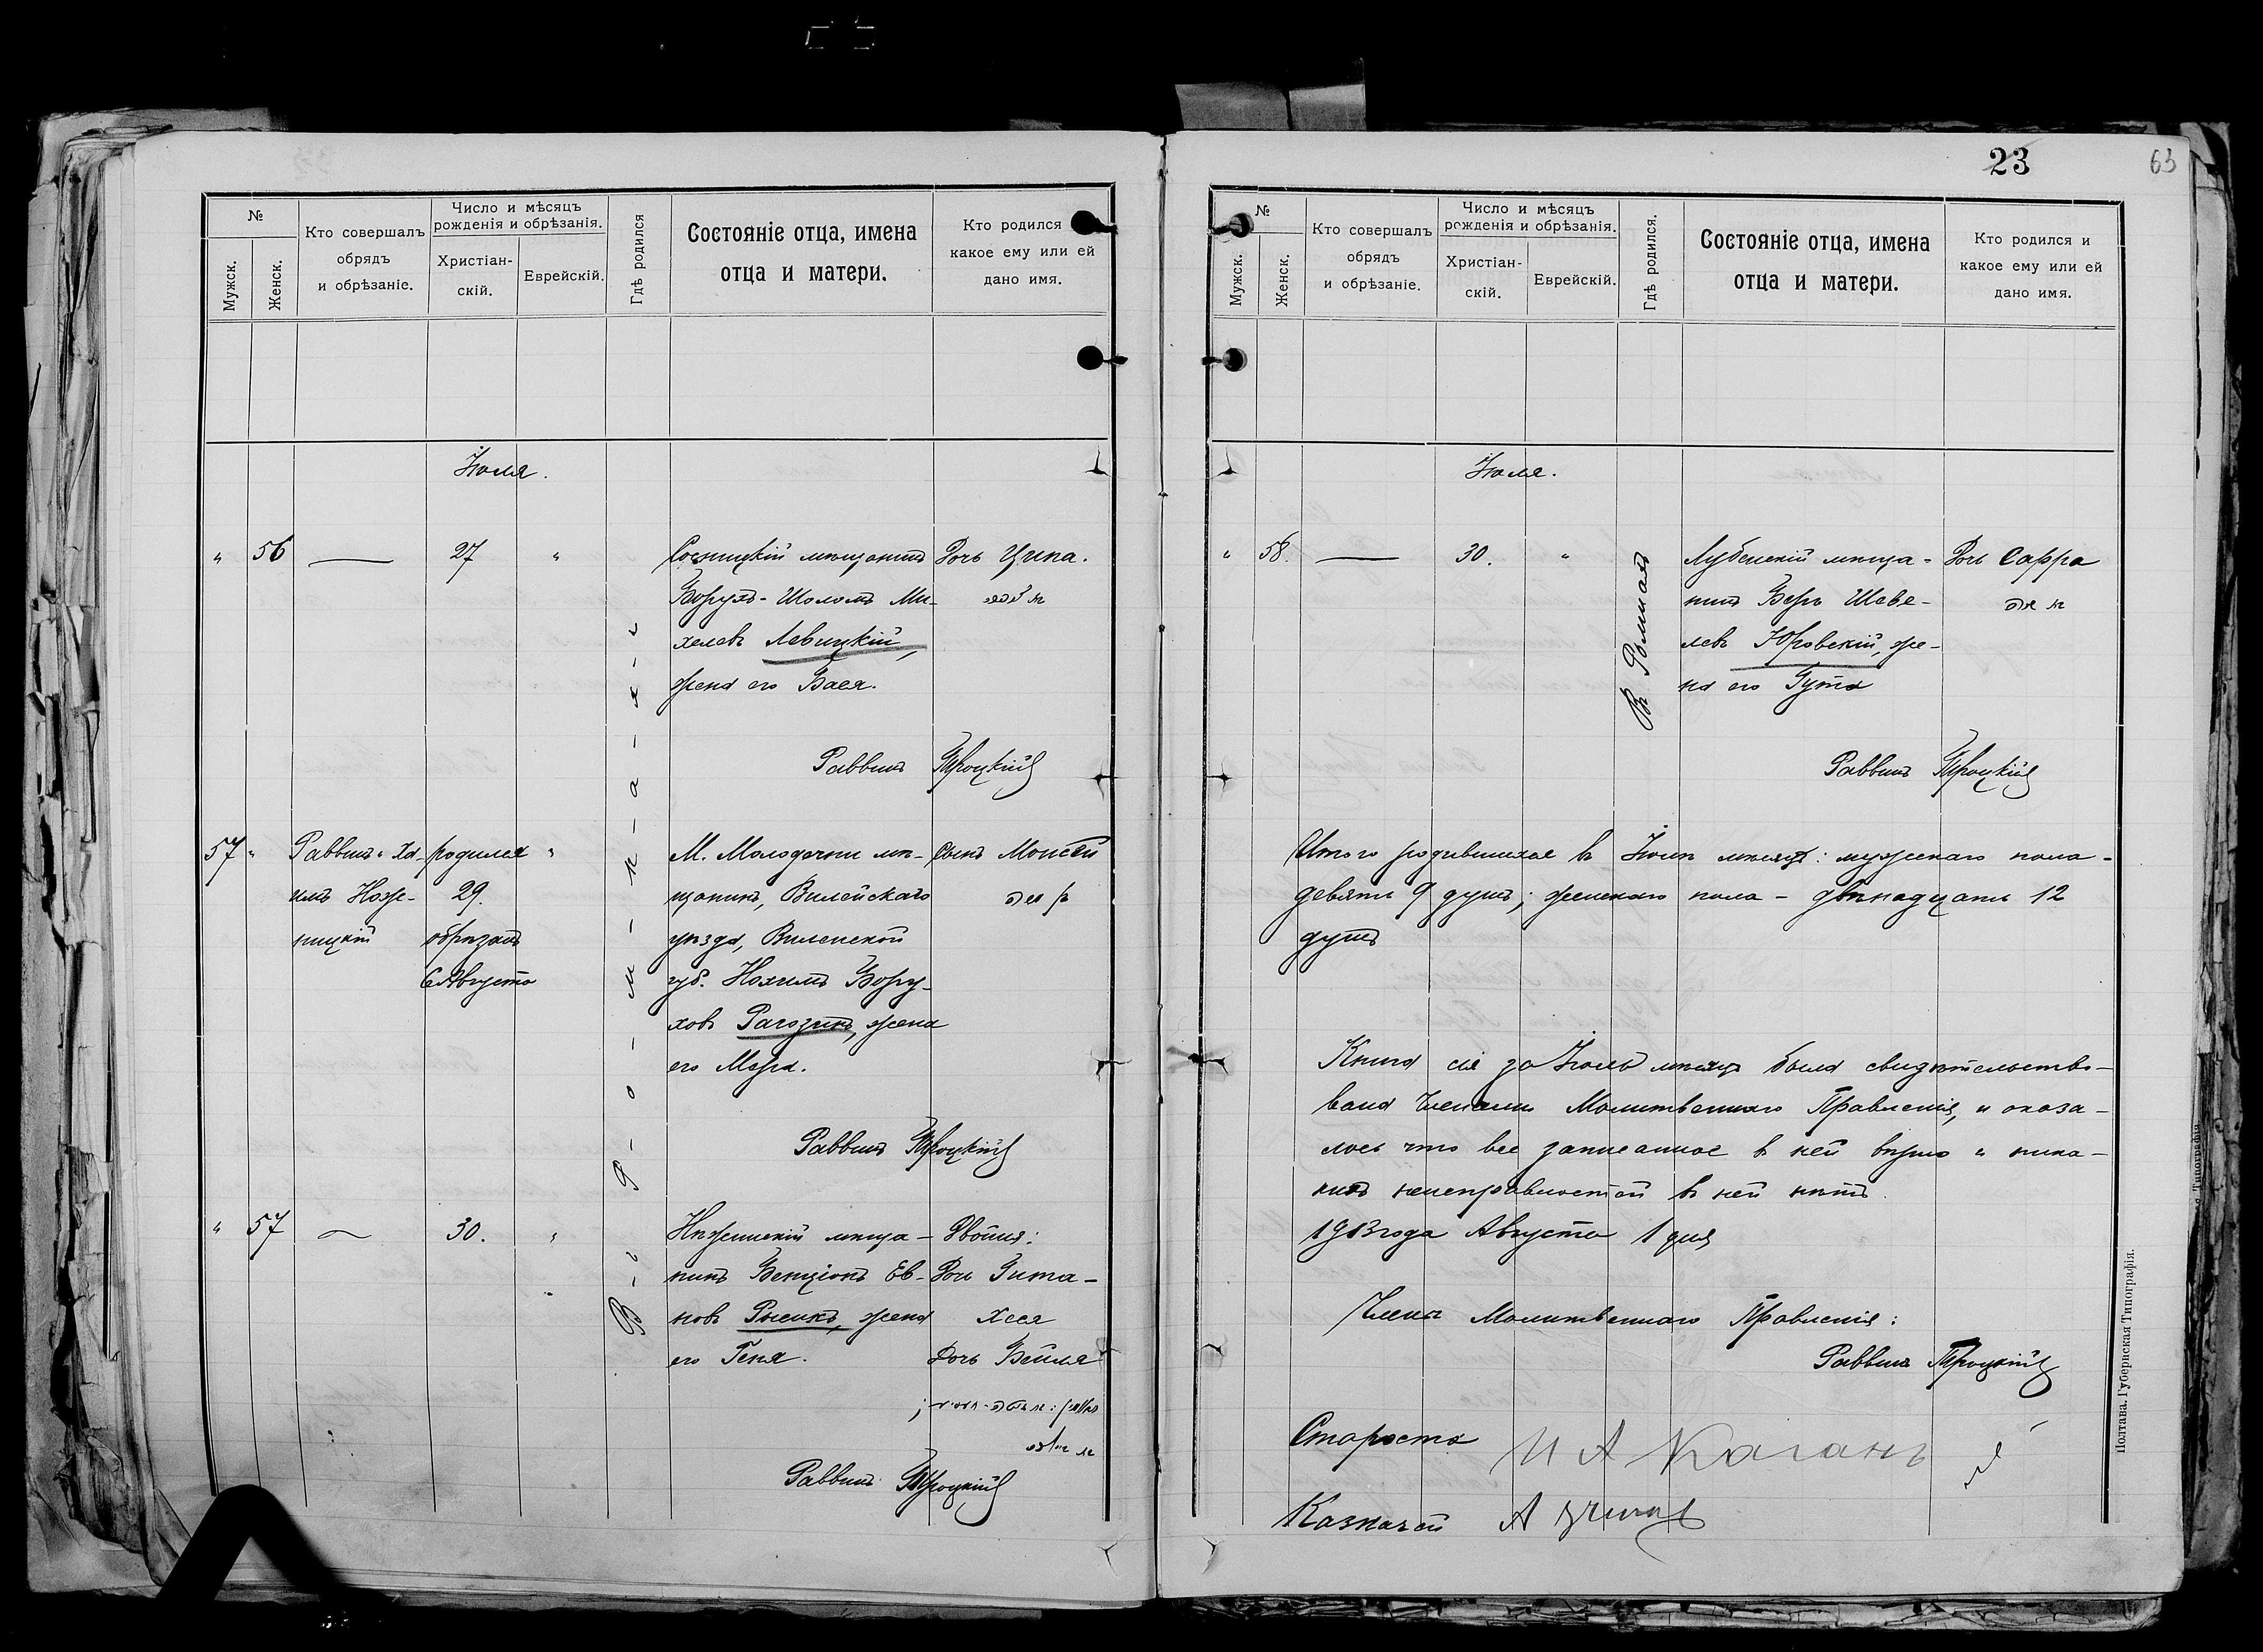 №
Мужск.
Женск.
Кто совершалъ
обрядъ
и обрѣзаніе.
Число и мѣсяцъ
рожденія и обрѣзанія.
Христіан-
скій.
Еврейскій.
Гдѣ родился
Состояніе отца, имена
отца и матери.
Кто родился
какое ему или ей
дано имя.
Іюля.
" 56 — 27 "
Сосницкій мѣщанинъ
Борухъ-Шоломъ Ми-
хелевъ Левицкій,
жена его Бася.
Дочь Ципа.
Раввинъ Троцкій
57 "
Раввинъ Ха-
имъ Нож-
ницкій
родился "
29.
обрѣзанъ
6 Августа
М. Молодечни мѣ-
щанинъ, Вилейскаго
уѣзда, Виленской
губ. Нохимъ Бору-
ховъ Рагозинъ, жена
его Мера.
Сынъ Моисей
Раввинъ Троцкій
" 57 — 30. "
Нѣжинскій мѣща-
нинъ Бенціонъ Ев-
новъ Рысинъ, жена
его Геня.
Двойня:
Дочь Гита-
Хася
Дочь Бейля
Раввинъ Троцкій
23
63
№
Мужск.
Женск.
Кто совершалъ
обрядъ
и обрѣзаніе.
Число и мѣсяцъ
рожденія и обрѣзанія.
Христіан-
скій.
Еврейскій.
Гдѣ родился.
Состояніе отца, имена
отца и матери.
Кто родился и
какое ему или ей
дано имя.
Іюля.
" 58. — 30. "
Въ Ромнахъ
Лубенскій мѣща-
нинъ Беръ Шеве-
левъ Юровскій, же-
на его Гута
Дочь Сарра
Раввинъ Троцкій
Итого родившихся въ Іюлѣ мѣсяцѣ: мужескаго пола-
девять 9 душъ; женскаго пола - двѣнадцать 12
душъ
Книга сія за Іюль мѣсяцъ была свидѣтельство-
вана Членами Молитвеннаго Правленія, и оказа-
лось что все записанное въ ней вѣрно и ника-
кихъ неисправностей въ ней нѣтъ.
1913 года Августа 1 дня
Члены Молитвеннаго Правленія:
Раввинъ Троцкій
Староста И А Каганъ
Казначей А
Полтава. Губернская Типографія.